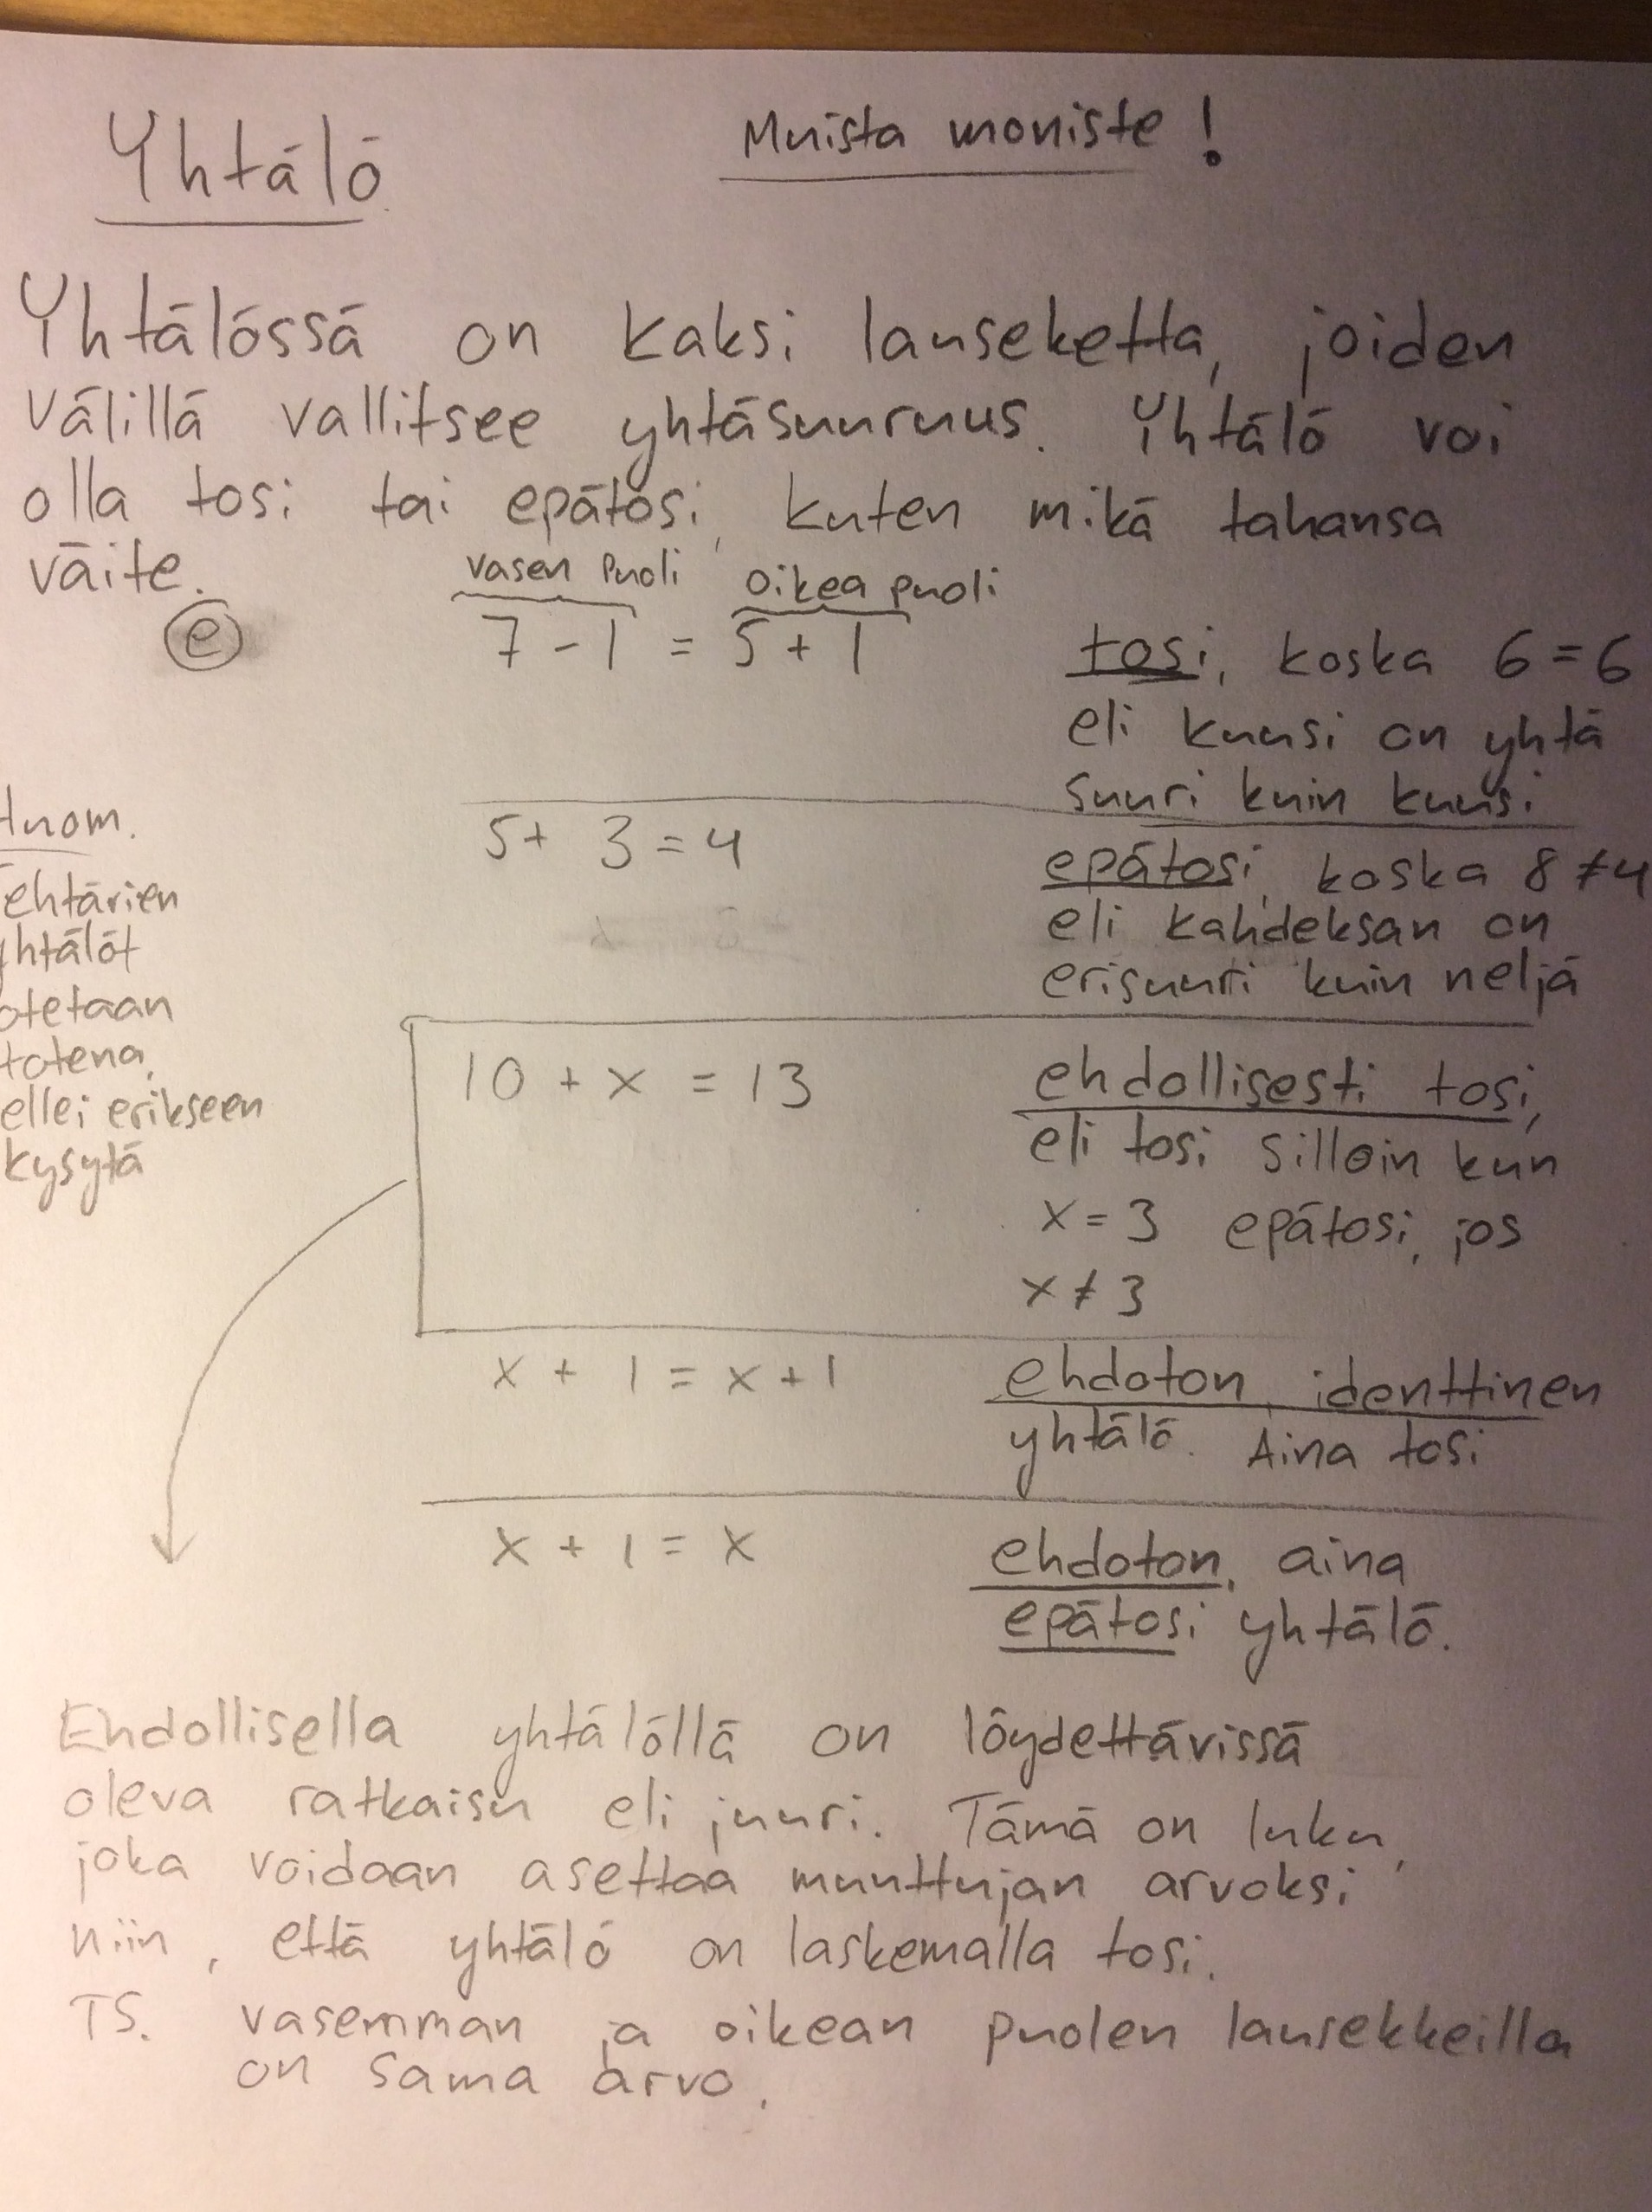 Yhtälö
Muista moniste!
Yhtälössä on kaksi lauseketta, joiden
välillä vallitsee yhtäsuuruus. Yhtälö voi
olla tosi tai epätosi, kuten mikä tahansa
väite.
vasen puoli oikea puoli
e 7 - 1 = 5 + 1
tosi, koska 6 = 6
eli kuusi on yhtä
suuri kuin kuusi
Huom.
ehtävien
yhtälöt
otetaan
totena,
ellei erikseen
kysytä
5 + 3 = 4
epätosi, koska 8 ≠ 4
eli kahdeksan on
erisuuri kuin neljä
10 + x = 13
ehdollisesti tosi,
eli tosi silloin kun
x = 3 epätosi, jos
x ≠ 3
x + 1 = x + 1
ehdoton, identtinen
yhtälö. Aina tosi
x + 1 = x
ehdoton, aina
epätosi yhtälö.
Ehdollisella yhtälöllä on löydettävissä
oleva ratkaisu eli juuri. Tämä on luku,
joka voidaan asettaa muuttujan arvoksi
niin, että yhtälö on laskemalla tosi.
TS. vasemman ja oikean puolen lausekkeilla
on sama arvo.